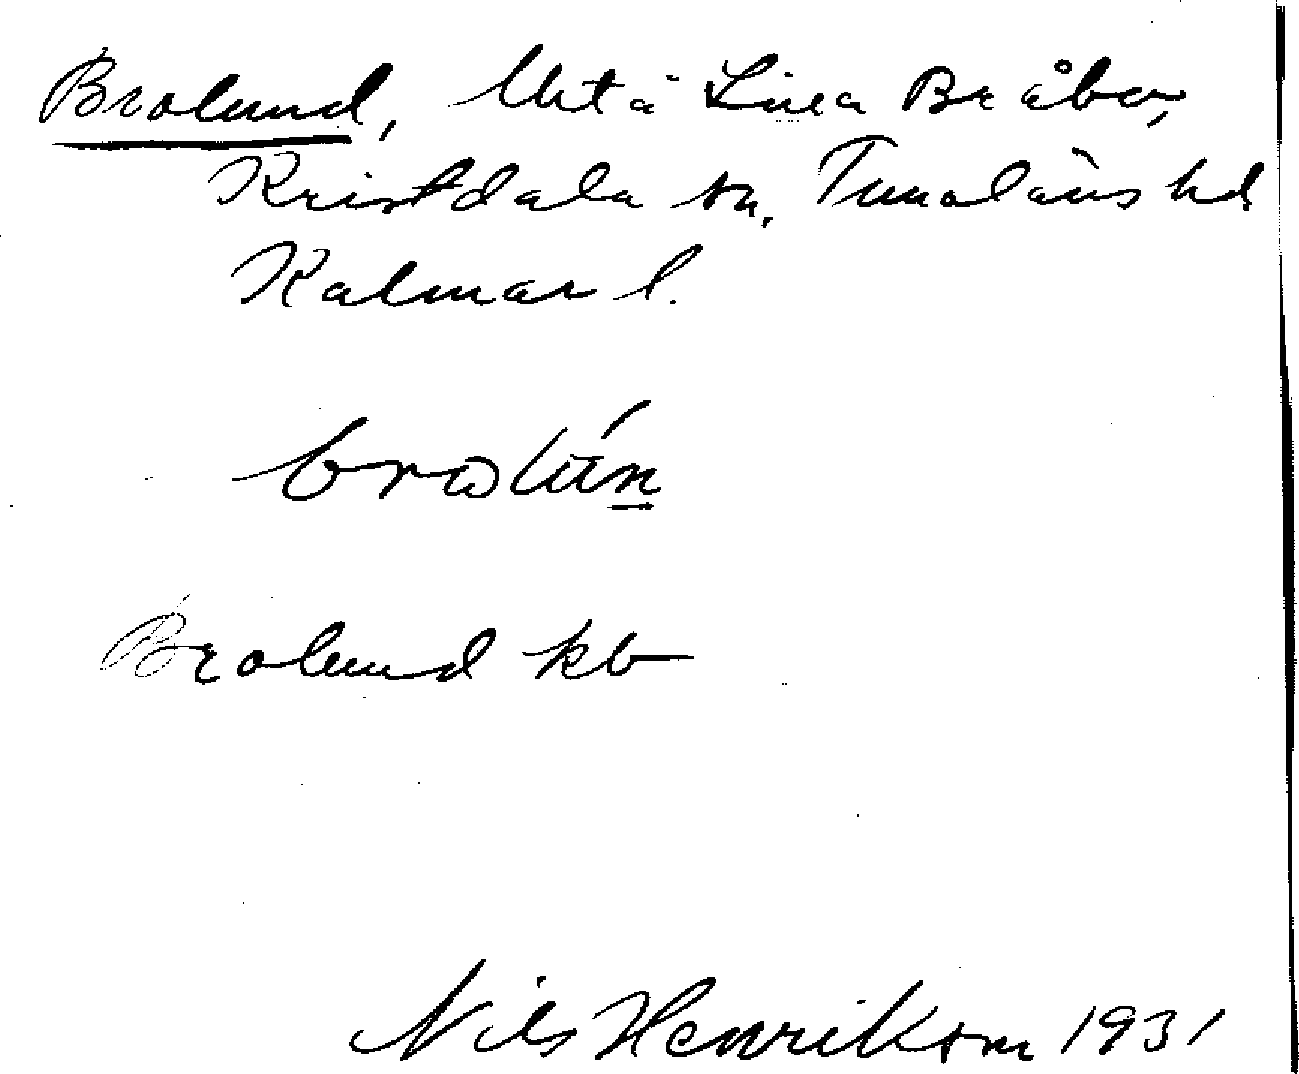 Brolund, Utä Lilla Bråbo,
Kristdala sn, Tunaläns hd
Kalmar l.
Brolund kb
Nils Henrikson 1931